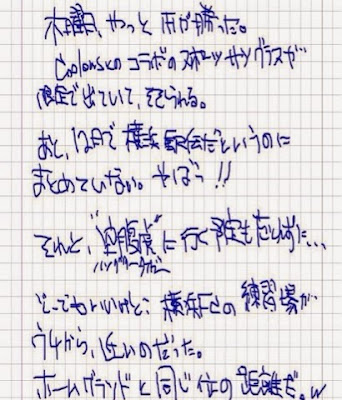 木曜、やっと 雨が勝った。
のコラボのスポーツサングラスが
限定で出ていて、そそられる。
あと、12月で横浜駅伝だというのに
まとめていない。やばっ!!
それと、"空腹虎"に行く予定もたてずに…
ハングリータイガー
どーでもいいけど、横浜FCの練習場が
ウチから、近いのだった。
ホームグランドと同じ位の距離だ。w